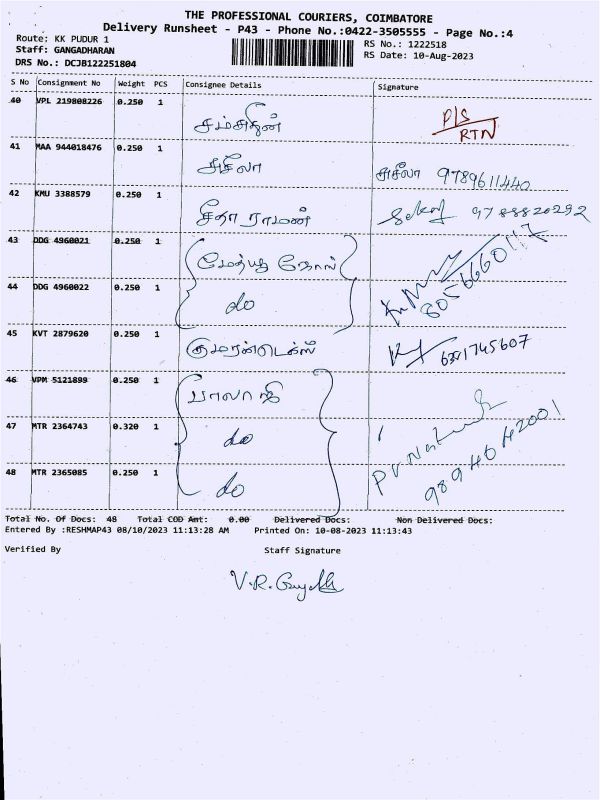 THE PROFESSIONAL COURIERS, COIMBATORE
Delivery Runsheet - P43 - Phone No.:0422-3505555 - Page No.:4
Route: KK PUDUR 1
RS No.: 1222518
Staff: GANGADHARAN
RS Date: 10-Aug-2023
DRS No.: DCJB122251804
S No Consignment No Weight PCS Consignee Details Signature
40 VPL 219808226 0.250 1 P/S
RTN
41 MAA 944018476 0.250 1 சுசீலா சுசீலா 9789611440
42 KMU 3388579 0.250 1 சீதா ராமன் 9788820292
43 DDG 4960021 0.250 1 மேத்யூ தோமஸ்
44 DDG 4960022 0.250 1 do 8056660117
45 KVT 2879620 0.250 1 குமரன்டெக்ஸ் 6381745607
46 VPM 5121899 0.250 1 பாலாஜி
47 MTR 2364743 0.320 1 do
48 MTR 2365085 0.250 1 do 9894042001
Total No. Of Docs: 48 Total COD Amt: 0.00 Delivered Docs: Non Delivered Docs:
Entered By :RESHMAP43 08/10/2023 11:13:28 AM Printed On: 10-08-2023 11:13:43
Verified By Staff Signature